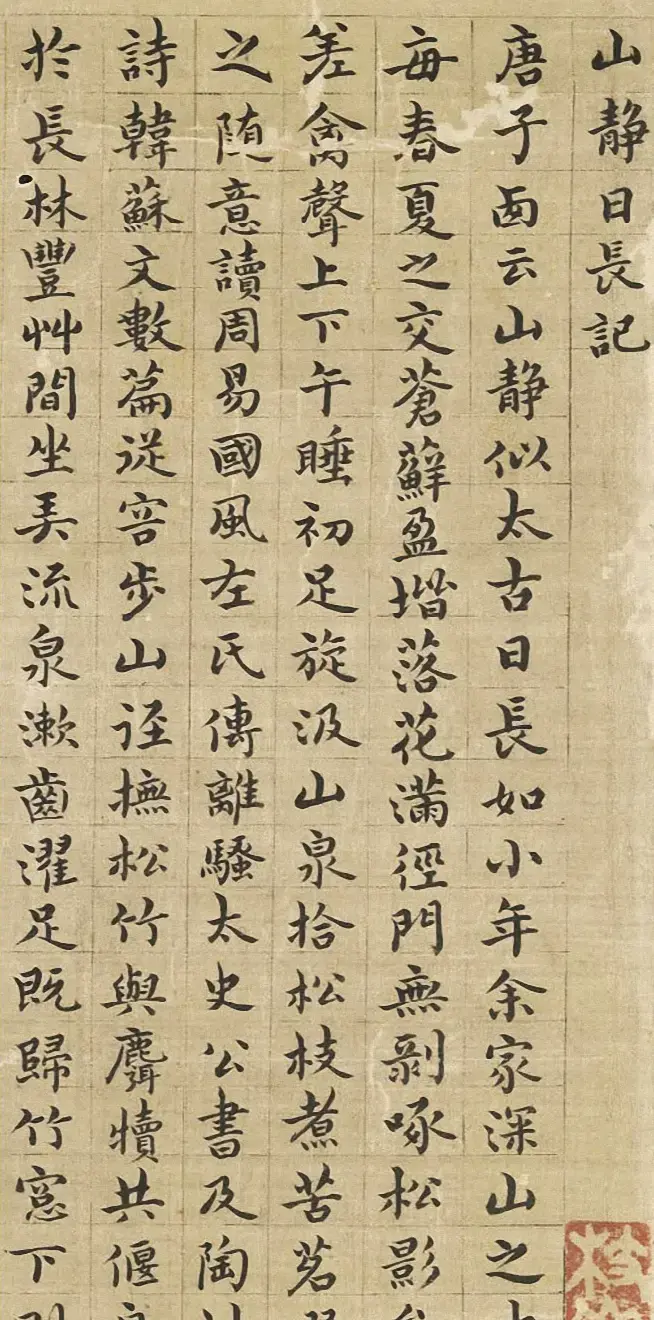 山静日長記
唐子西云山静似太古日長如小年余家深山之
每春夏之交蒼蘚盈堦落花滿徑門無剥啄松影
差禽聲上下午睡初足旋汲山泉拾松枝煮苦茗
之随意讀周易國風左氏傳離騷太史公書及陶
詩韓蘇文數篇從容步山逕撫松竹與麛犢共偃
於長林豐艸間坐弄流泉漱齒濯足既歸竹窓下